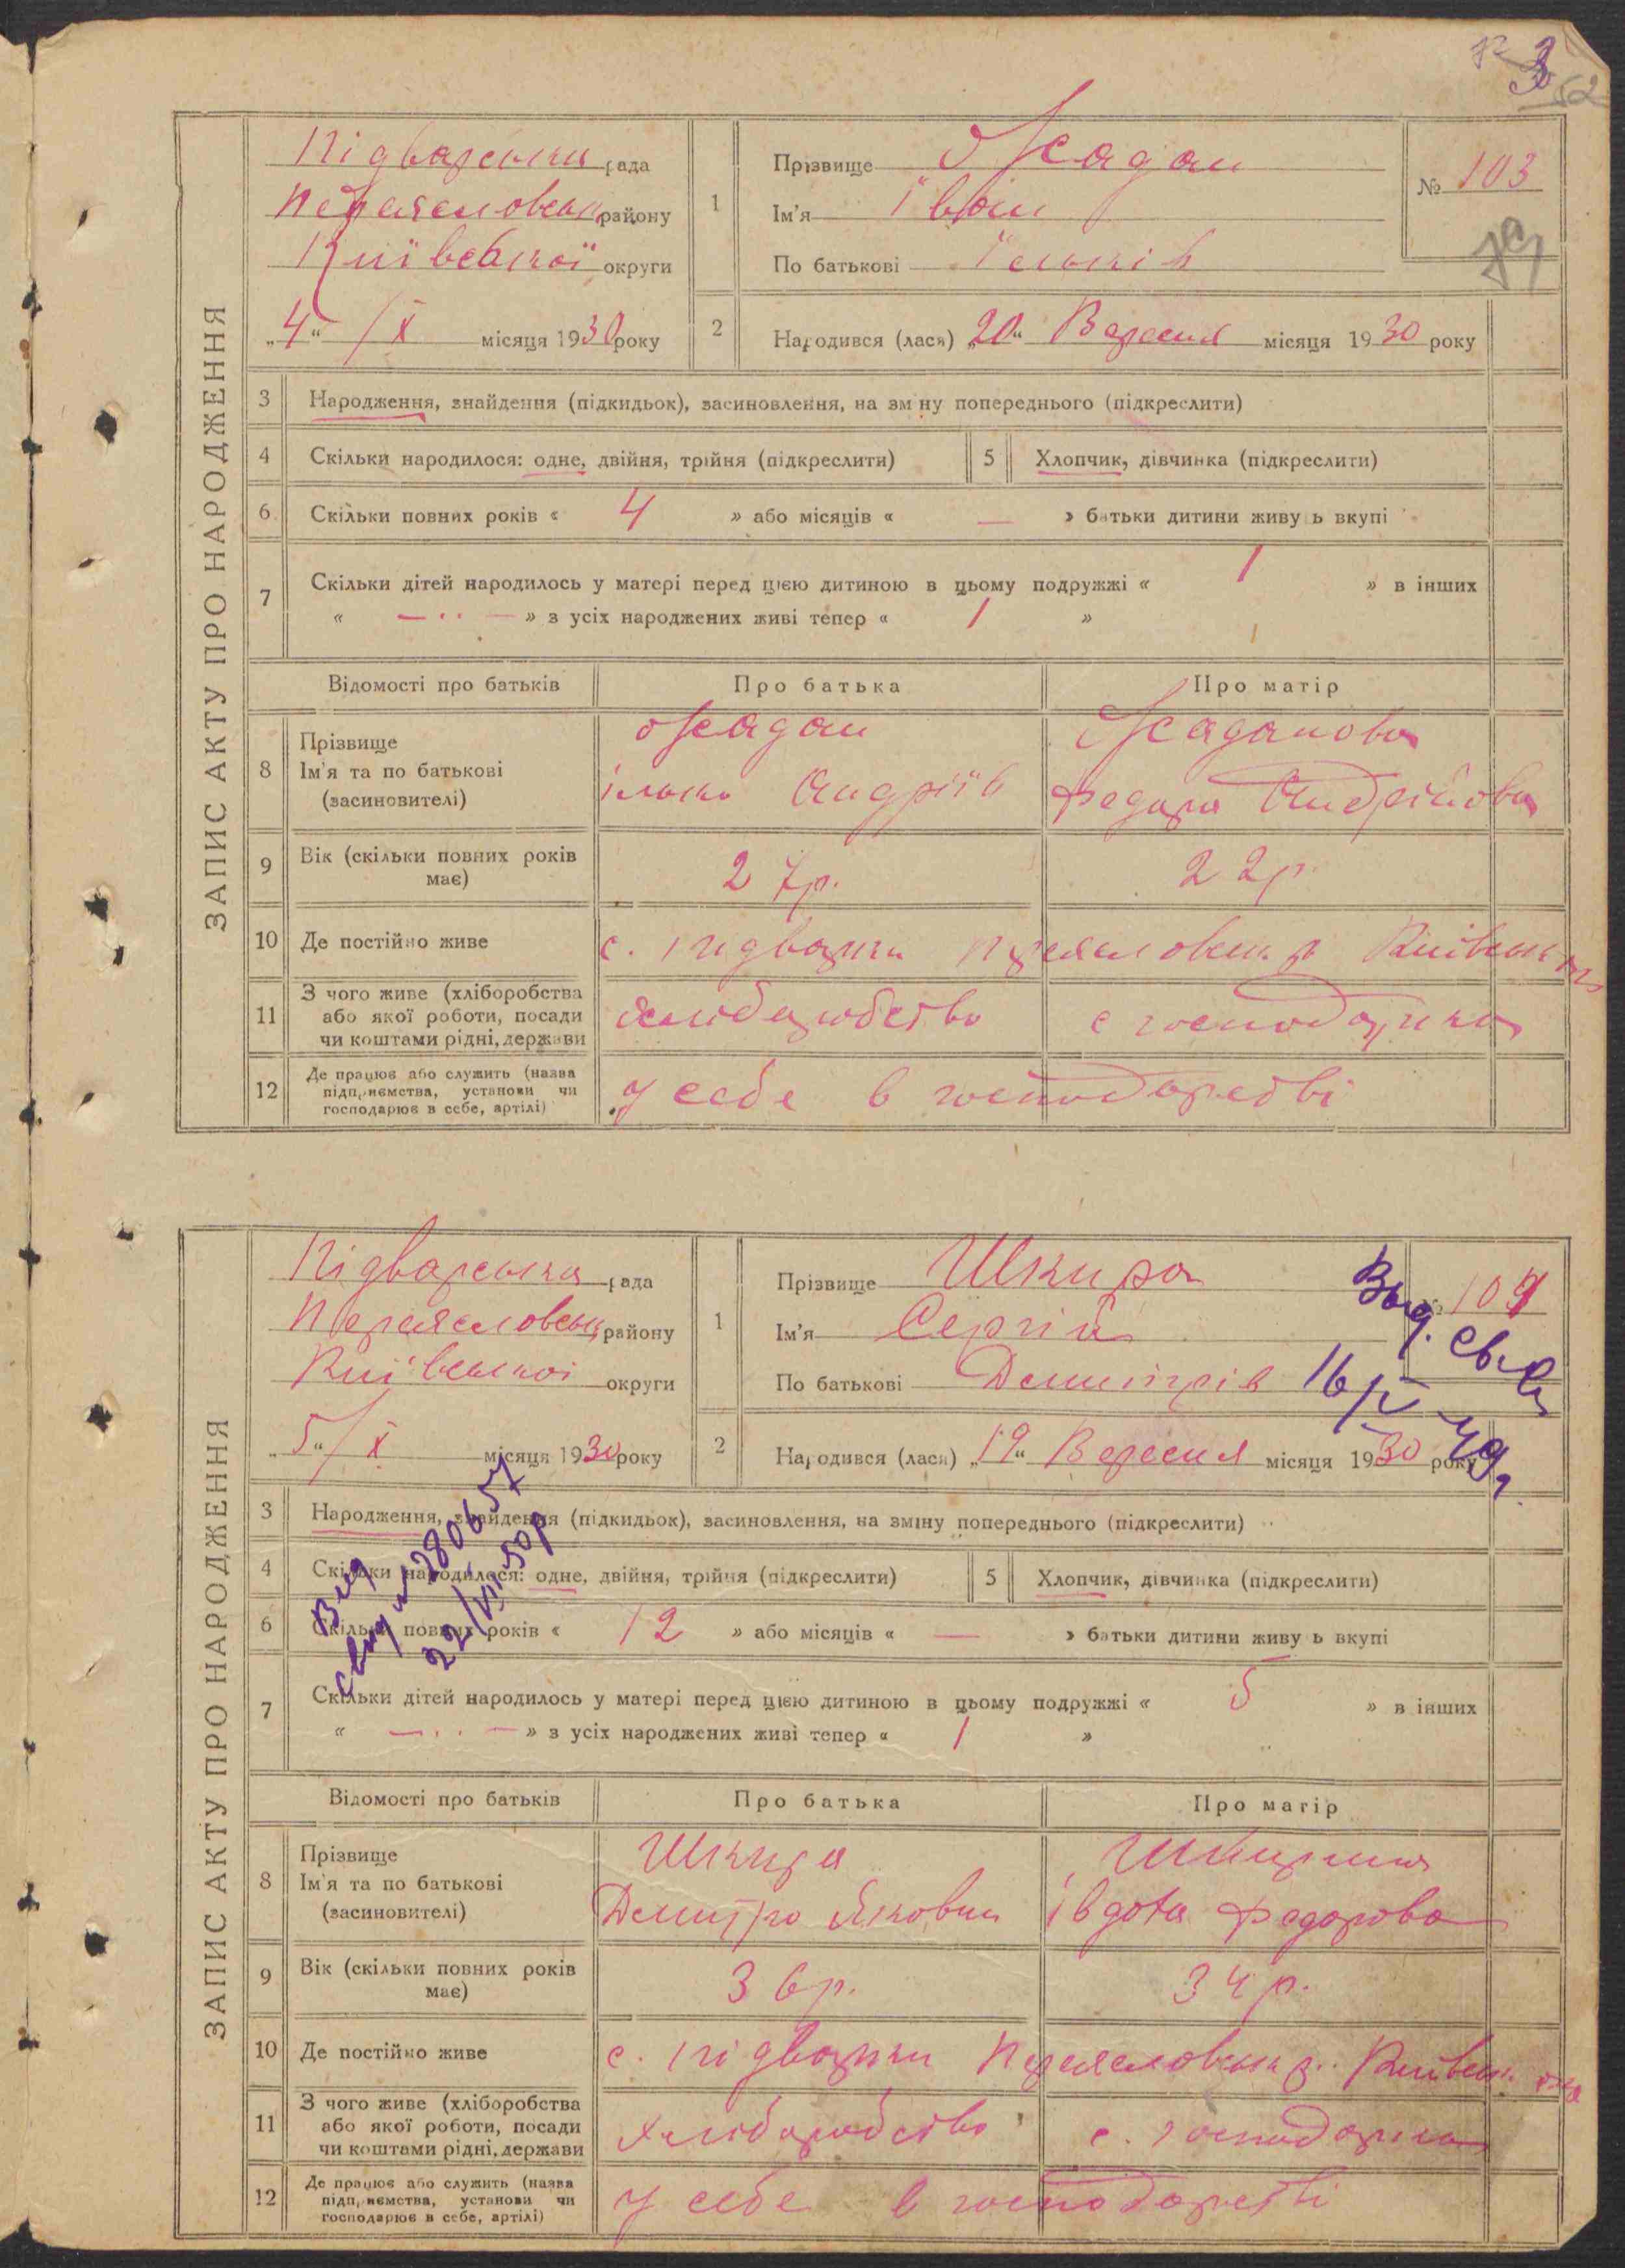 3
52
ЗАПИС АКТУ ПРО НАРОДЖЕННЯ
Підварська рада
Переясловськ району
Київської округи
„4“ / X місяця 1930 року
1
Прізвище Жадан
Ім'я Іван
По батькові Ільків
№ 103
2
Народився (лася) „20“ Вересня місяця 1930 року
3 Народження, знайдення (підкидьок), засиновлення, на зміну попереднього (підкреслити)
4 Скільки народилося: одне, двійня, трійня (підкреслити) 5 Хлопчик, дівчинка (підкреслити)
6 Скільки повних років « 4 » або місяців « — » батьки дитини живуть вкупі
7 Скільки дітей народилось у матері перед цією дитиною в цьому подружжі « 1 » в інших
« — · · — » з усіх народжених живі тепер « 1 »
Відомості про батьків Про батька Про матір
8 Прізвище Ім'я та по батькові (засиновителі)
Жадан Жаданова
Ілько Андріїв Федора Андрійова
9 Вік (скільки повних років має) 27р. 22р.
10 Де постійно живе с. Підварки Переяловськ р Київськ
11 З чого живе (хліборобства або якої роботи, посади чи коштами рідні, держави
хліборобство є господарка
12 Де працює або служить (назва підприємства, установи чи господарює в себе, артілі)
у себе в господарстві
ЗАПИС АКТУ ПРО НАРОДЖЕННЯ
Підварська рада
Переясловськ району
Київської округи
„5“ / X місяця 1930 року
1
Прізвище Шкира
Ім'я Сергій
По батькові Демитрів
№ 104
Выд. св-в
16/V 49г.
2
Народився (лася) „19“ Вересня місяця 1930 року
3 Народження, знайдення (підкидьок), засиновлення, на зміну попереднього (підкреслити)
4 Скільки народилося: одне, двійня, трійня (підкреслити) 5 Хлопчик, дівчинка (підкреслити)
6 Скільки повних років « 12 » або місяців « — » батьки дитини живуть вкупі
7 Скільки дітей народилось у матері перед цією дитиною в цьому подружжі « 5 » в інших
« — · · — » з усіх народжених живі тепер « 1 »
Відомості про батьків Про батька Про матір
8 Прізвище Ім'я та по батькові (засиновителі)
Шкира
Демитро Якович Івдота Федорова
9 Вік (скільки повних років має) 36р. 34р.
10 Де постійно живе с. Підварки Переясловськ р. Київськ.
11 З чого живе (хліборобства або якої роботи, посади чи коштами рідні, держави
хліборобство є. господарка
12 Де працює або служить (назва підприємства, установи чи господарює в себе, артілі)
у себе в господарстві